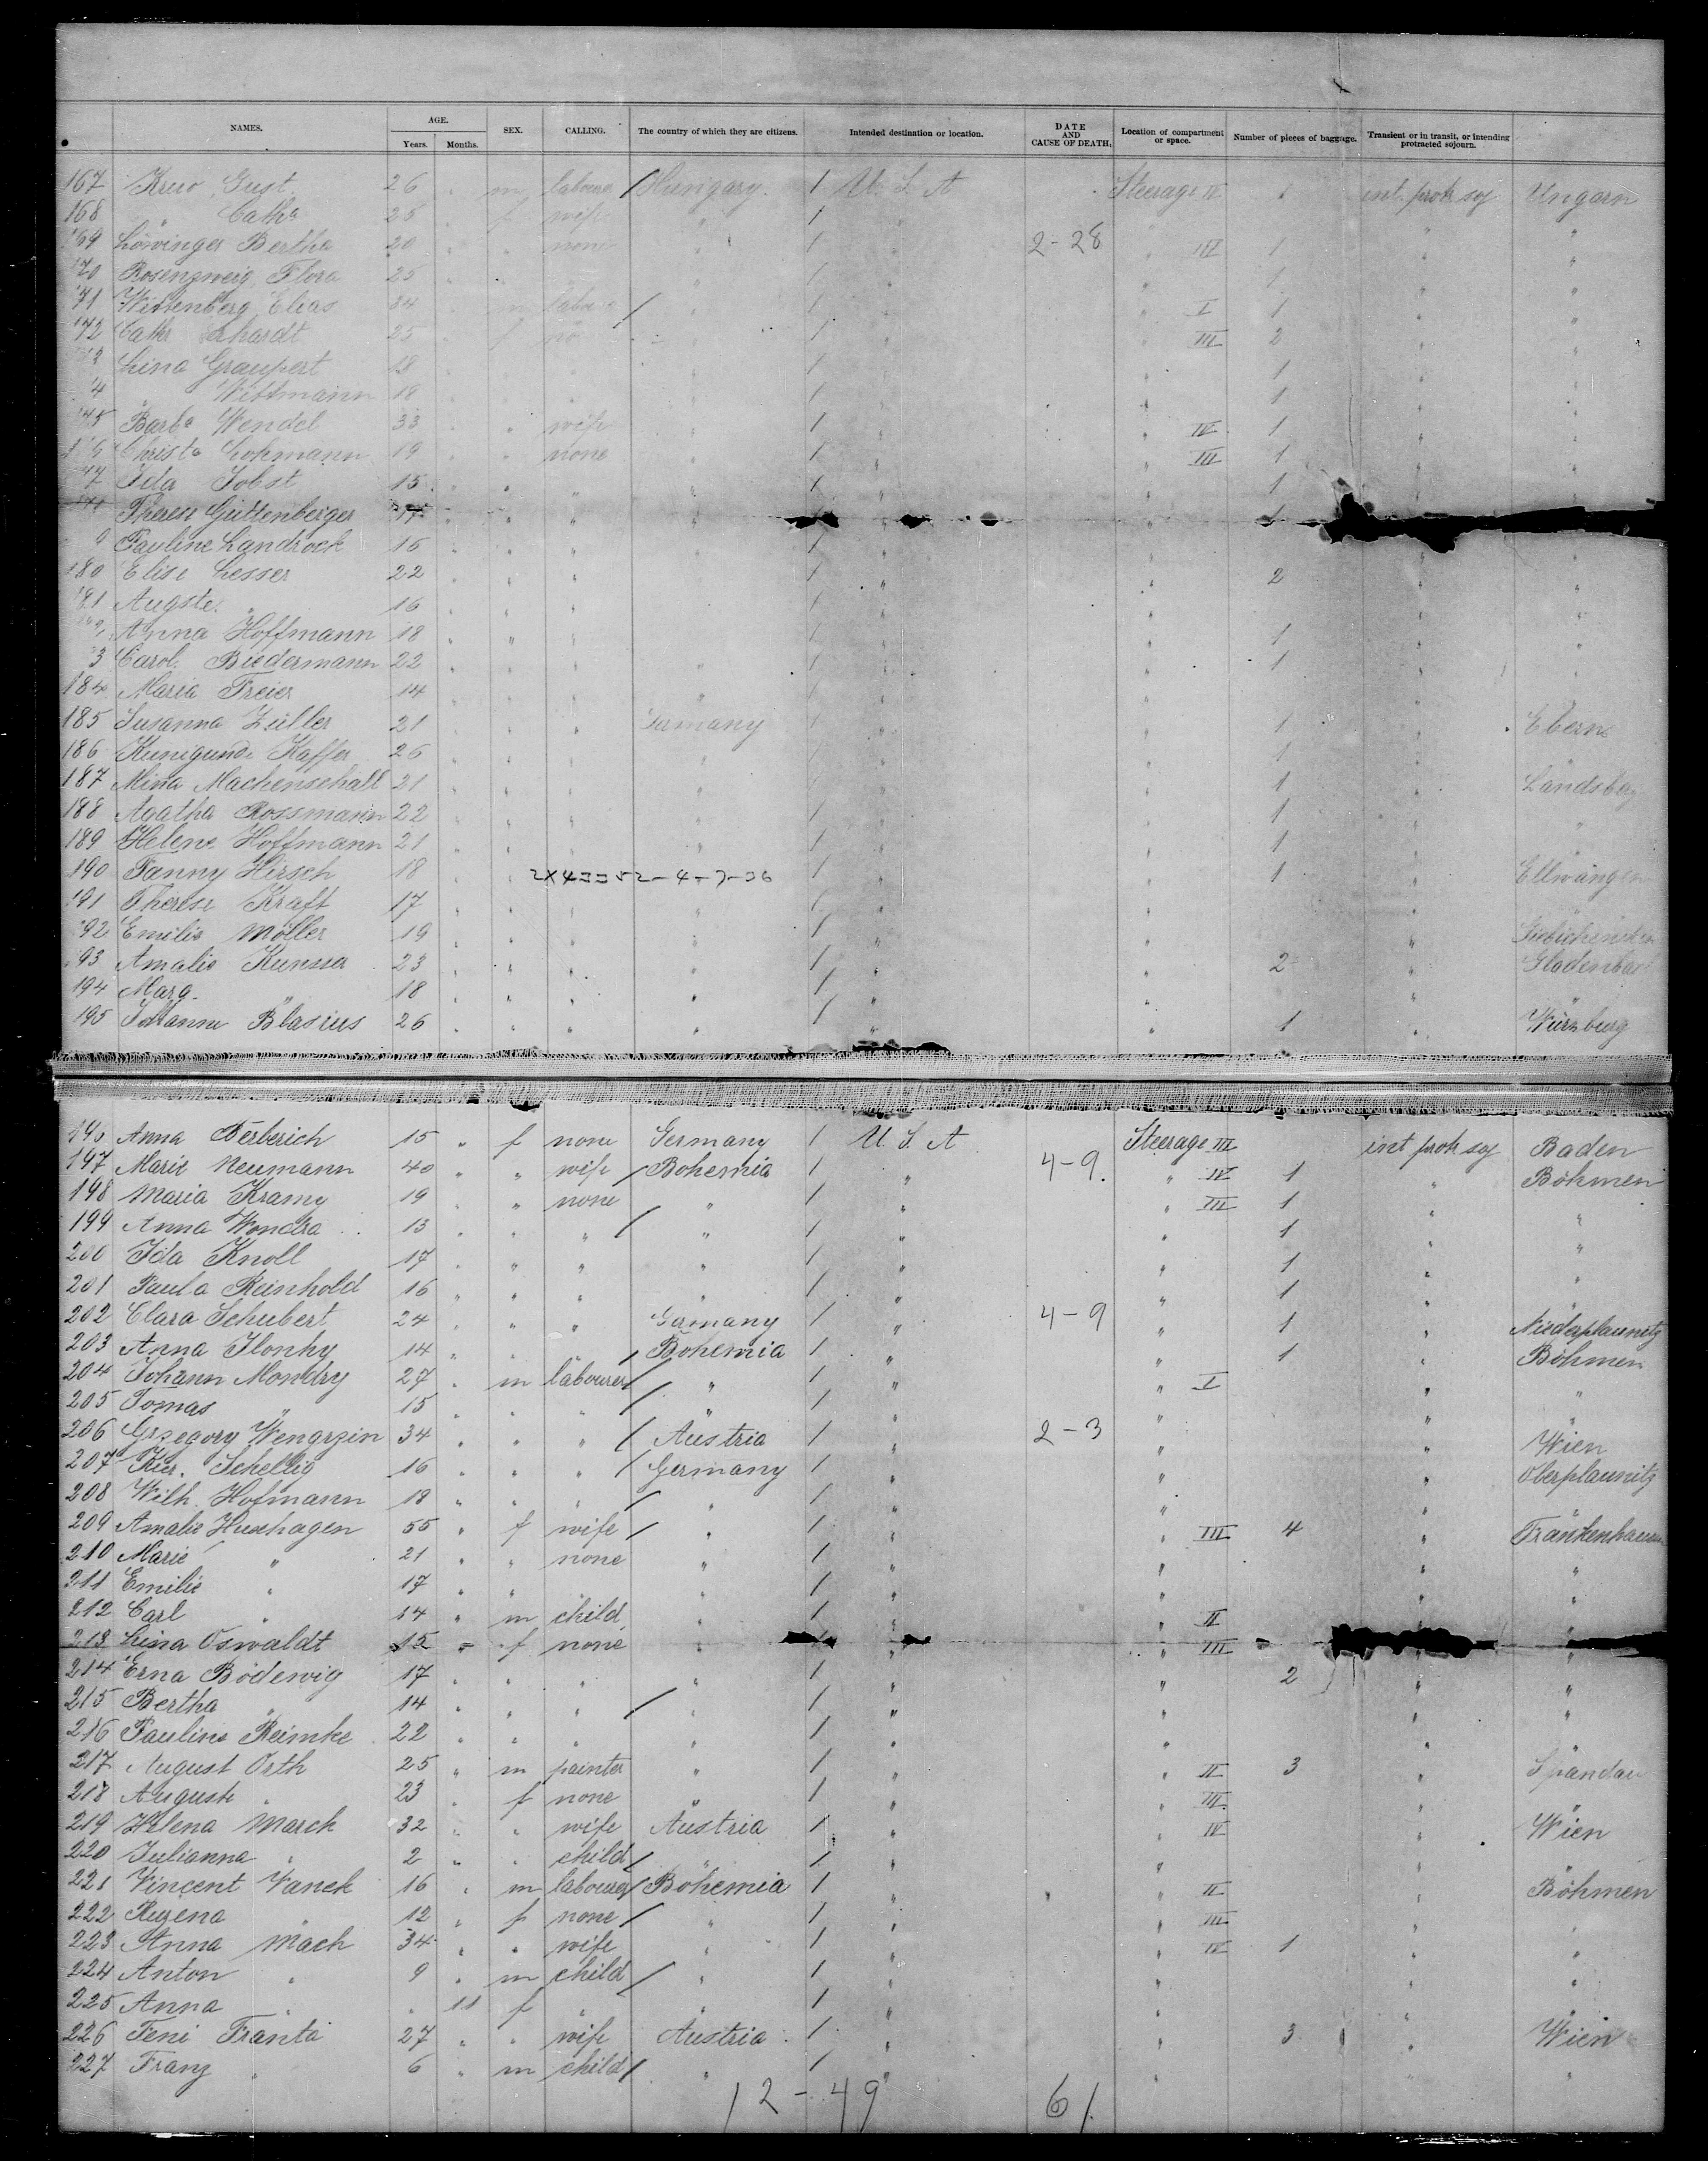 NAMES. AGE. Years. Months. SEX. CALLING. The country of which they are citizens. Intended destination or location. DATE AND CAUSE OF DEATH. Location of compartment or space. Number of pieces of baggage. Transient or in transit, or intending protracted sojourn.
167 Gust. 26 " m laboure / Hungary. 1 U. S. A Steerage IV int. protr soj Ungarn
168 " Cathe 25 " f wife " 1 "
169 Löwinger Bertha 20 " " none " 1 " 2-28 " III 1 " "
170 Rosenzweig Flora 25 " " 1 " " 1 " "
171 Wittenberg Elias 34 m / " 1 " " I 1 " "
172 25 f " 1 " " III 2 " "
Lina Graupert 18 " 1 " " 1 " "
4 " Wittmann 18 " " 1 " " 1 " "
Barbe Wendel 33 " " wife " 1 " " IV 1 " "
Lohmann 19 " " none " 1 " " III 1 " "
77 Ida Jobst 15 " " " " 1 " " 1 " "
Theres Güttenberger 17 " " " " "
9 Pauline Landrock 16 " " " " 1 " " " "
180 Elise Lesser 22 " " " 1 " " 2 " "
181 Auguste " 16 " " " 1 " " " "
Anna Hoffmann 18 " " " 1 " " 1 " "
3 Carol. Biedermann 22 " " " " 1 " " 1 " "
184 Maria Freier 14 " " " " 1 " " "
185 Susanna Züller 21 " " " Germany 1 " " 1 " Ebern
186 Kunigunde Kaffer 26 " " " " 1 " " 1 " "
187 Mina Machenschall 21 " " " " 1 " " 1 "
188 Agatha Rossmann 22 " " " " 1 " " 1 " "
189 Helene Hoffmann 21 " " " " 1 " " 1 "
190 Fanny Hirsch 18 " " 1 " " 1 " Ellwangen
191 Therese Kraft 17 " " " " 1 " " " "
192 Emilie Möller 19 " " " " 1 " " "
193 Amalie 23 " " " " 1 " " 2 "
194 Marg. " 18 " " " " 1 " " " "
195 Johanne Blasius 26 " " " " 1 " " 1 " Würzburg
196 Anna Derberich 15 " f none Germany 1 U. S. A Steerage III int protr soj Baden
197 Marie Neumann 40 " " wife / Bohemia 1 " 4-9. " IV 1 " Böhmen
198 Maria Kramy 19 " " none " 1 " " III 1 " "
199 Anna Wondra 13 " " " / " 1 " " 1 " "
200 Ida Knoll 17 " " " " 1 " " 1 " "
201 Paula Reinhold 16 " " " " 1 " " 1 " "
202 Clara Schubert 24 " " " Germany 1 " 4-9 " 1 " Niederplaunitz
203 Anna 14 " " " / Bohemia 1 " " 1 " Böhmen
204 Johann Mondry 27 " m labourer / " 1 " " I " "
205 Tomas " 15 " " " / " 1 " " " "
206 Grzegory Wengrzin 34 " " " / Austria 1 " 2-3 " " Wien
207 Schellig 16 " " " / Germany 1 " " " Oberplaunitz
208 Wilh. Hofmann 18 " " " / " 1 " " " "
209 Amalie 55 " f wife / " 1 " " III 4 " Frankenhausen
210 Marie " 21 " " none " 1 " " " "
211 Emilie " 17 " " " 1 " " " "
212 Carl " 14 " m child " 1 " " II " "
213 Lina Oswaldt 15 " f none " " " III
214 Erna Bödewig 17 " " " " 1 " " 2 " "
215 Bertha " 14 " " " / " 1 " " " "
216 Pauline Reimke 22 " " " " 1 " " " "
217 August Orth 25 " m painter " 1 " " II 3 " Spandau
218 Auguste " 23 " f none " 1 " " III " "
219 Helena March 32 " " wife Austria 1 " " IV " Wien
220 Julianna " 2 " " child / " 1 " " " "
221 Vincent Vanek 16 " m labourer / Bohemia 1 " " II " Böhmen
222 Ruzena " 12 " f none / " 1 " " III " "
223 Anna Mach 34 " " wife " 1 " " IV 1 " "
224 Anton " 9 " m child / " 1 " " " "
225 Anna " " 11 f " " 1 " " " "
226 Feni Franta 27 " " wife Austria 1 " " 3 " Wien
227 Franz " 6 " m child / " 1 " " " "
12-49 61.